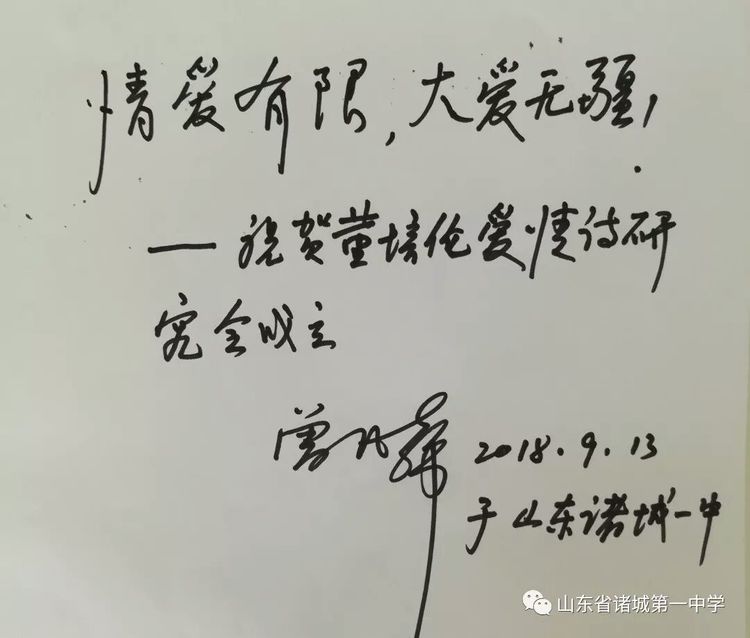 情爱有限，大爱无疆！
——祝贺董培伦爱情诗研
究会成立
曾凡华 2018.9.13
于山东诸城一中
山东省诸城第一中学